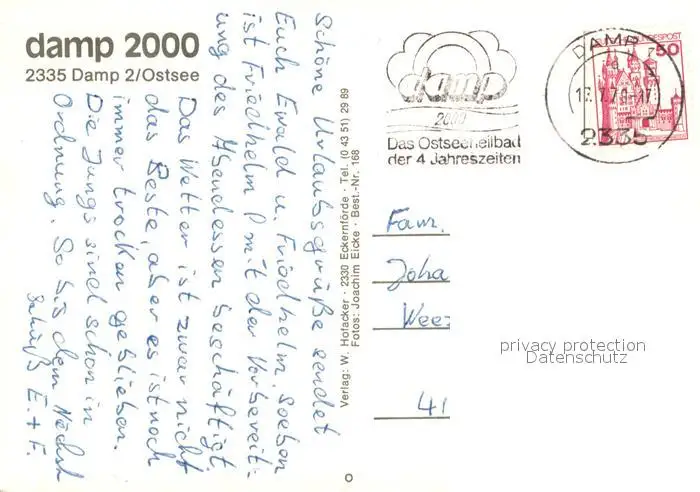 damp 2000
2335 Damp 2/Ostsee
Schöne Urlaubsgrüße sendet
Euch Ewald u. Friedhelm. Soeben
ist Friedhelm P. mit der Vorbereit-
ung des Abendessen beschäftigt.
Das Wetter ist zwar nicht
das Beste, aber es ist noch
immer trocken geblieben.
Die Jungs sind schon in
Ordnung. So bis dem Nächst
E. + F.
Verlag: W. Hofacker · 2330 Eckernförde · Tel. (0 43 51) 29 89
Fotos: Joachim Eicke · Best.-Nr. 168
damp
2000
Das Ostseeheilbad
der 4 Jahreszeiten
DAMP
2335
BUNDESPOST
50
Fam.
Joha
Wee
41
privacy protection
Datenschutz